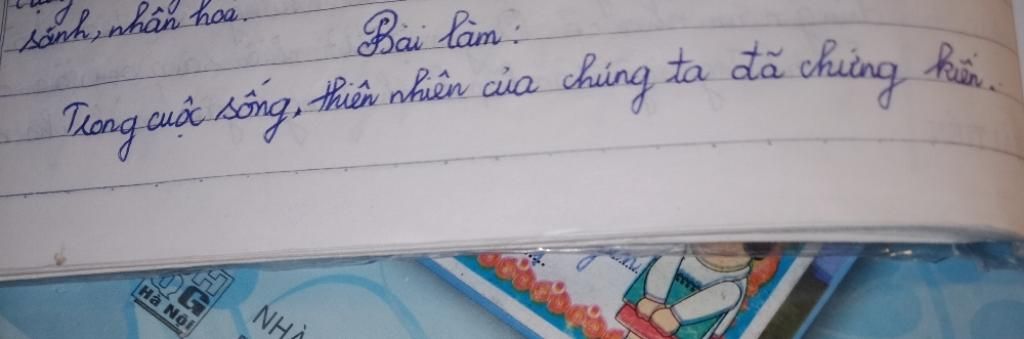 sánh, nhân hoá.
Bài làm:
Trong cuộc sống, thiên nhiên của chúng ta đã chứng kiến.
ĐHQG
Hà Nội
NHÀ